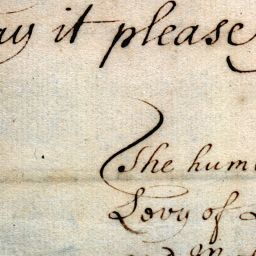 ay it please
The hum
Levy of L